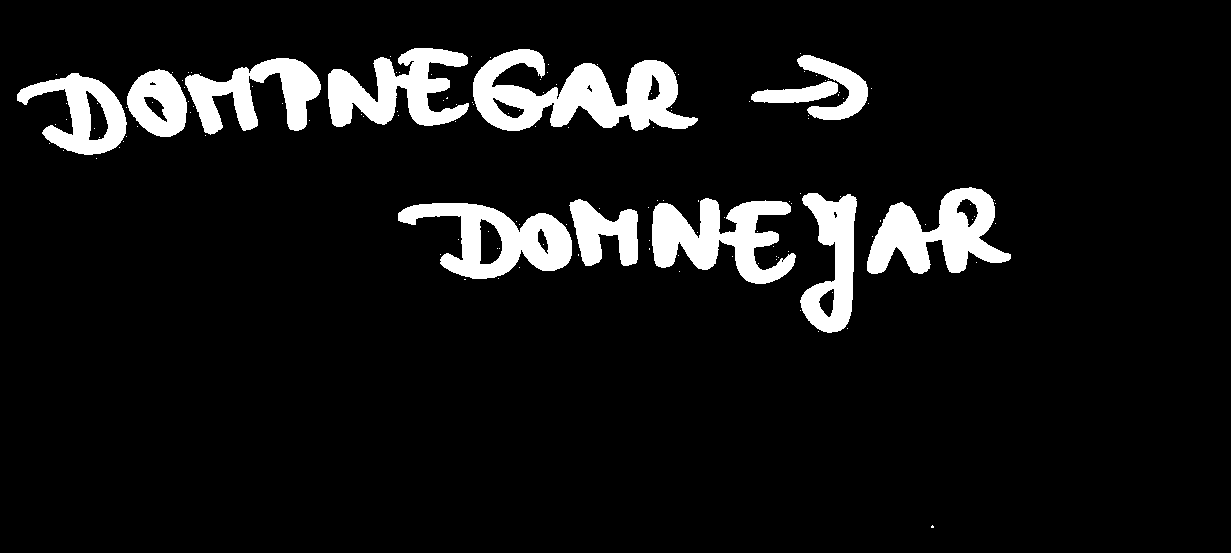 DOMPNEGAR →
DOMNEYAR